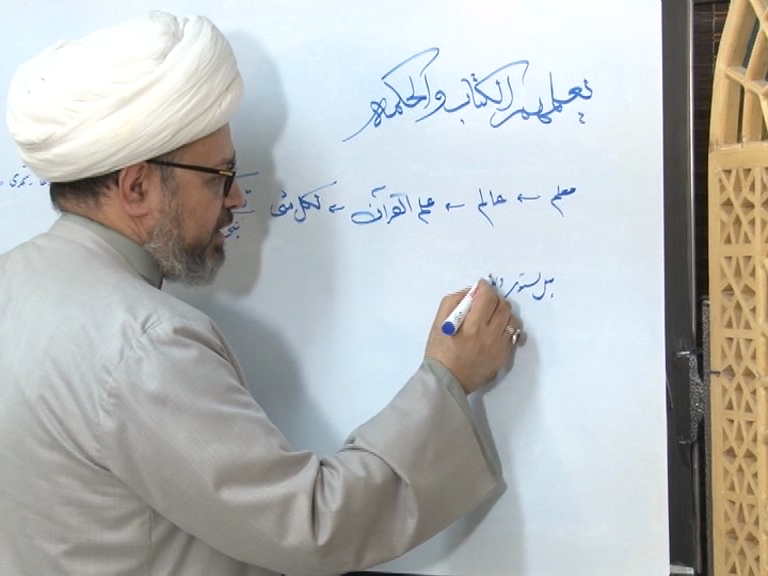 يعلمهم الكتاب والحكمة
معلم ← عالم ← علم القرآن ← لكل شئ
هل يستوي